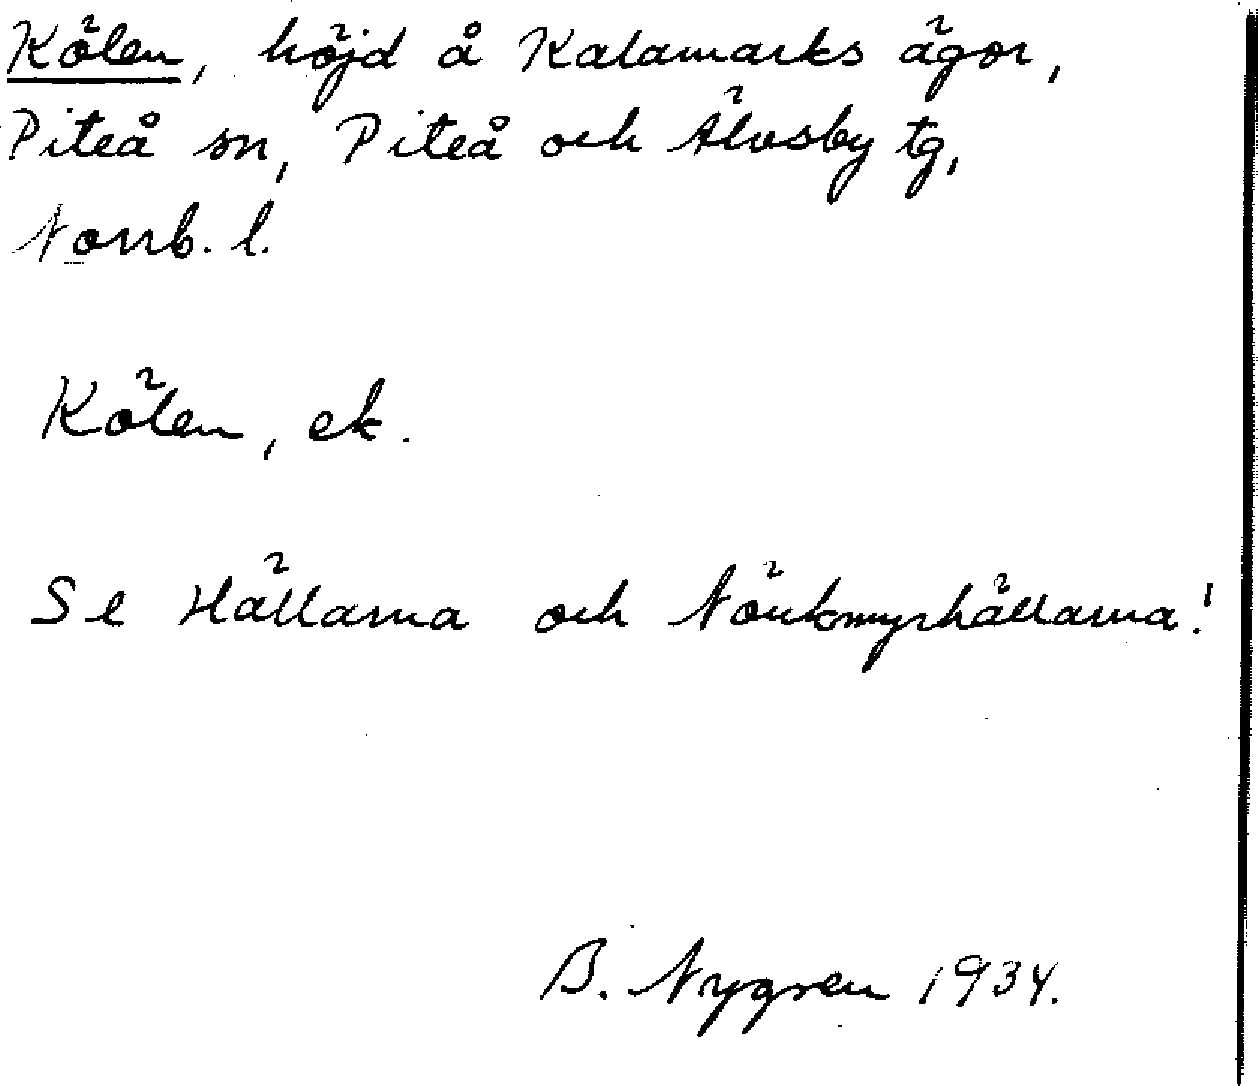 Kölen, höjd å Kalamarks ägor,
Piteå sn, Piteå och Älvsby tg,
Norrb. l.
Kölen, ek.
Se Hällarna och !
B. Nygren 1934.